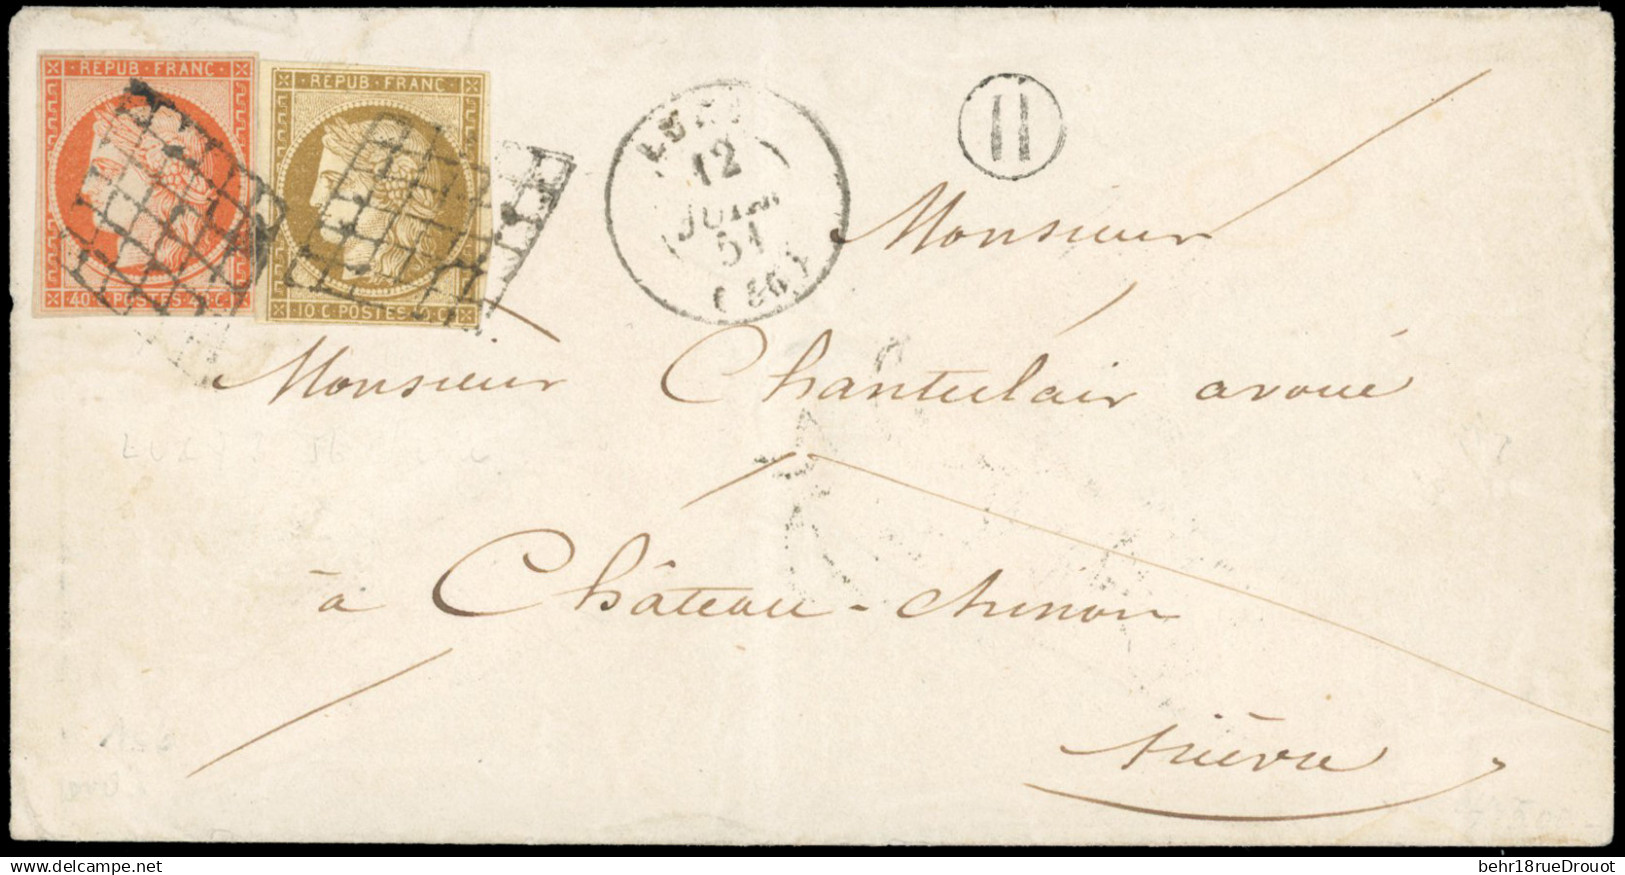 REPUB FRANC
40 C POSTES 40 C
REPUB FRANC
10 C POSTES 10 C
12
JUIL
51
H
Monsieur
Monsieur Chanteclair avoué
à Château-chinon
Nièvre
behr18rueDrouot